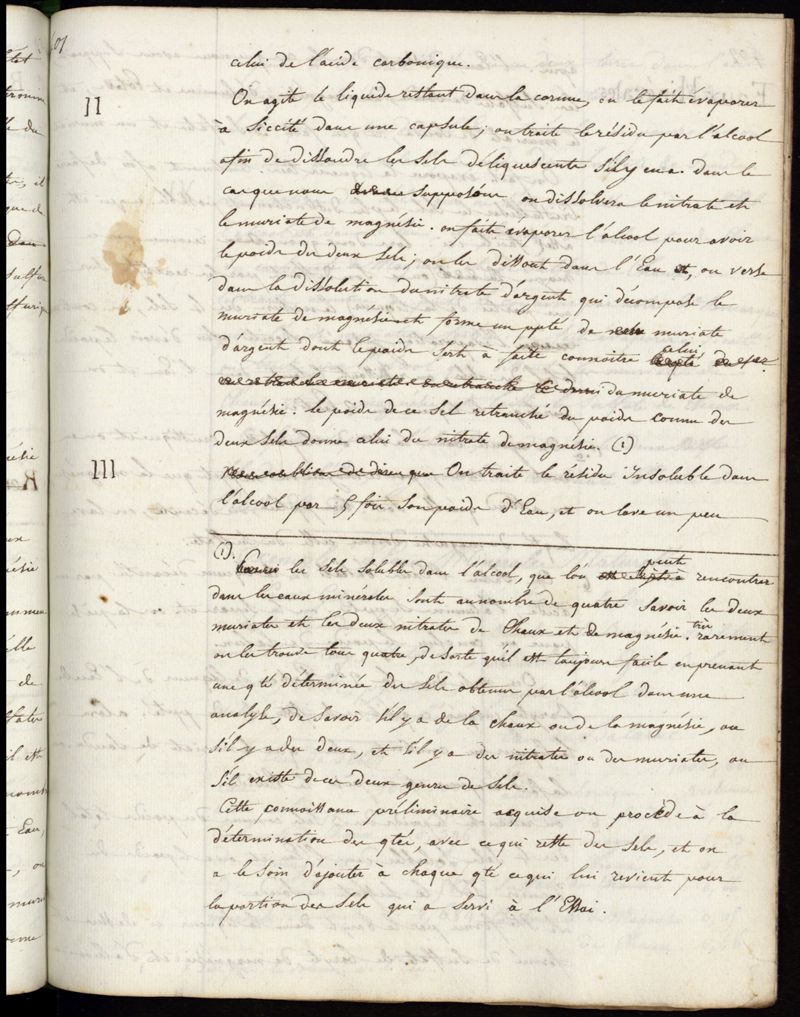 celui de l'acide carbonique.
II
On agite le liquide restant dans la cornue, on le fait évaporer
à siccité dans une capsule; on traite le résidu par l'alcool
afin de dissoudre les sels déliquescents s'il y en a. dans le
cas que nous supposons on dissolvera le nitrate et
le muriate de magnésie. on fait évaporer l'alcool pour avoir
le poids des deux sels; on les dissout dans l'Eau et, on verse
dans la dissolution du nitrate d'argent qui décompose le
muriate de magnésie et forme un ppté de muriate
d'argent dont le poids sert à faire connoitre celui
du muriate de
magnésie. le poids de ce sel retranché du poids connu des
deux sels donne celui du nitrate de magnésie. (1)
III
On traite le résidu insoluble dans
l'alcool par 5 fois son poids d'Eau, et on lave un peu
(1). les sels solubles dans l'alcool, que l'on peut rencontrer
dans les eaux minérales sont au nombre de quatre savoir les deux
muriates et les deux nitrates de Chaux et de magnésie. très rarement
on les trouve tous quatre, de sorte qu'il est toujours facile en prenant
une qté déterminée des sels obtenus par l'alcool dans une
analyse, de savoir s'il y a de la chaux ou de la magnésie, ou
s'il y a des deux, et s'il y a des nitrates ou des muriates, ou
s'il existe de ces deux genres de sels.
Cette connoissance préliminaire acquise on procède à la
détermination des qtés, avec ce qui reste des sels, et on
a le soin d'ajouter à chaque qté ce qui lui revient pour
la portion des sels qui a servi à l'Essai.